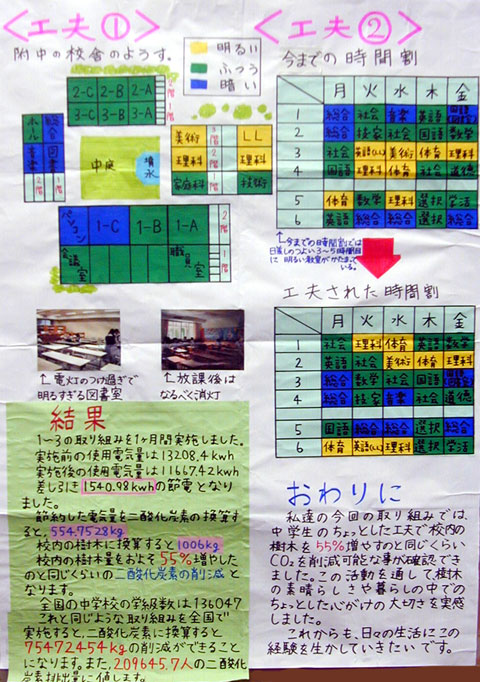 <工夫①>
附中の校舎のようす。
明るい
ふつう
暗い
2-C 2-B 2-A
3-C 3-B 3-A
2階
1階
ホール
総合
音楽
図書
2階
1階
中庭
噴水
美術 LL
理科 理科
家庭科 技術
3階
2階
1階
パソコン 1-C 1-B 1-A
会議室 職員室
2階
1階
↑電灯のつけ過ぎで
明るすぎる図書室
↑放課後は
なるべく消灯
結果
1～3の取り組みを1ヶ月間実施しました。
実施前の使用電気量は13208.4kwh
実施後の使用電気量は11667.42kwh
差し引き1540.98kwhの節電となり
ました。
節約した電気量を二酸化炭素の換算す
ると、554.7528kg
校内の樹木に換算すると1006kg
校内の樹木量をおよそ55%増やした
のと同じくらいの二酸化炭素の削減と
なります。
全国の中学校の学級数は136047
これと同じような取り組みを全国で
実施すると、二酸化炭素に換算すると
75472454kgの削減ができること
になります。また、209645.7人の二酸化
炭素排出量に値します。
<工夫②>
今までの時間割
月 火 水 木 金
1 総合 社会 音楽 英語
2 総合 技家 社会 国語 数学
3 社会 英語(LL) 美術 体育 理科
4 国語 理科 美術 社会 道徳
5 体育 数学 理科 選択 学活
6 英語 総合 総合 選択 総合
↑今までの時間割では
日差しのつよい3～5時間目
に明るい教室がかたまって
いる。
工夫された時間割
月 火 水 木 金
1 社会 理科 体育 英語 数学
2 英語 社会 美術 体育 理科
3 総合 数学 社会 国語
4 総合 技家 音楽 社会 道徳
5 国語 総合 総合 選択 総合
6 体育 英語(LL) 理科 選択 学活
おわりに
私達の今回の取り組みでは、
中学生のちょっとした工夫で校内の
樹木を55%増やすのと同じくらい
CO₂を削減可能な事が確認でき
ました。この活動を通して樹木
の素晴らしさや暮らしの中での
ちょっとした心がけの大切さを実感
しました。
これからも、日々の生活にこの
経験を生かしていきたいです。